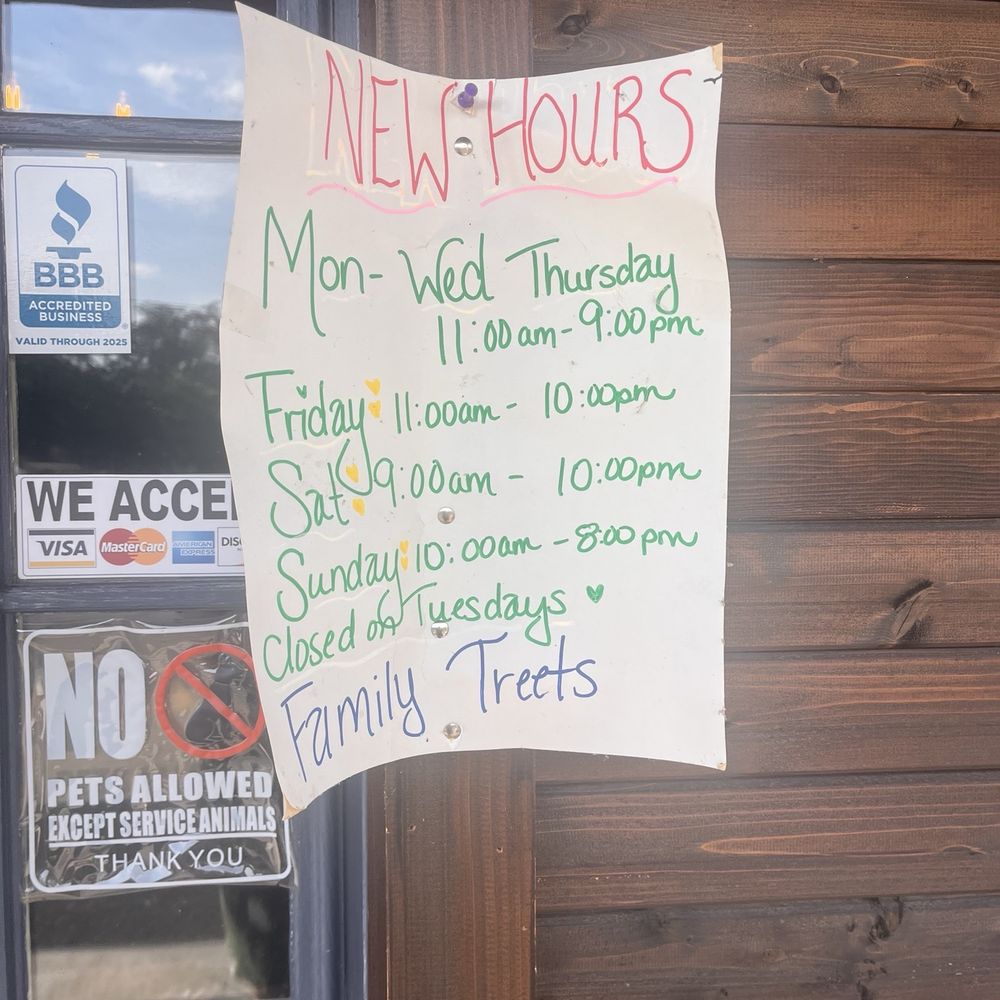 NEW HOURS
Mon- Wed Thursday
11:00am - 9:00pm
Friday: 11:00am - 10:00pm
Sat: 9:00am - 10:00pm
Sunday: 10:00am - 8:00pm
Closed on Tuesdays
Family Treets
BBB
ACCREDITED
BUSINESS
VALID THROUGH 2025
WE ACCE
VISA MasterCard AMERICAN EXPRESS DISC
NO
PETS ALLOWED
EXCEPT SERVICE ANIMALS
THANK YOU